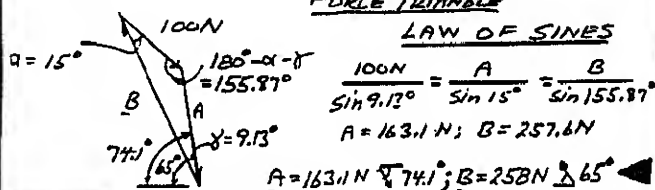 FORCE TRIANGLE
LAW OF SINES
100N
α = 15°
180°-α-γ
=155.87°
B
A
γ=9.13°
74.1°
65°
100N/sin 9.13° = A/sin 15° = B/sin 155.87°
A = 163.1 N; B = 257.6N
A=163.1 N 74.1°; B=258N 65°